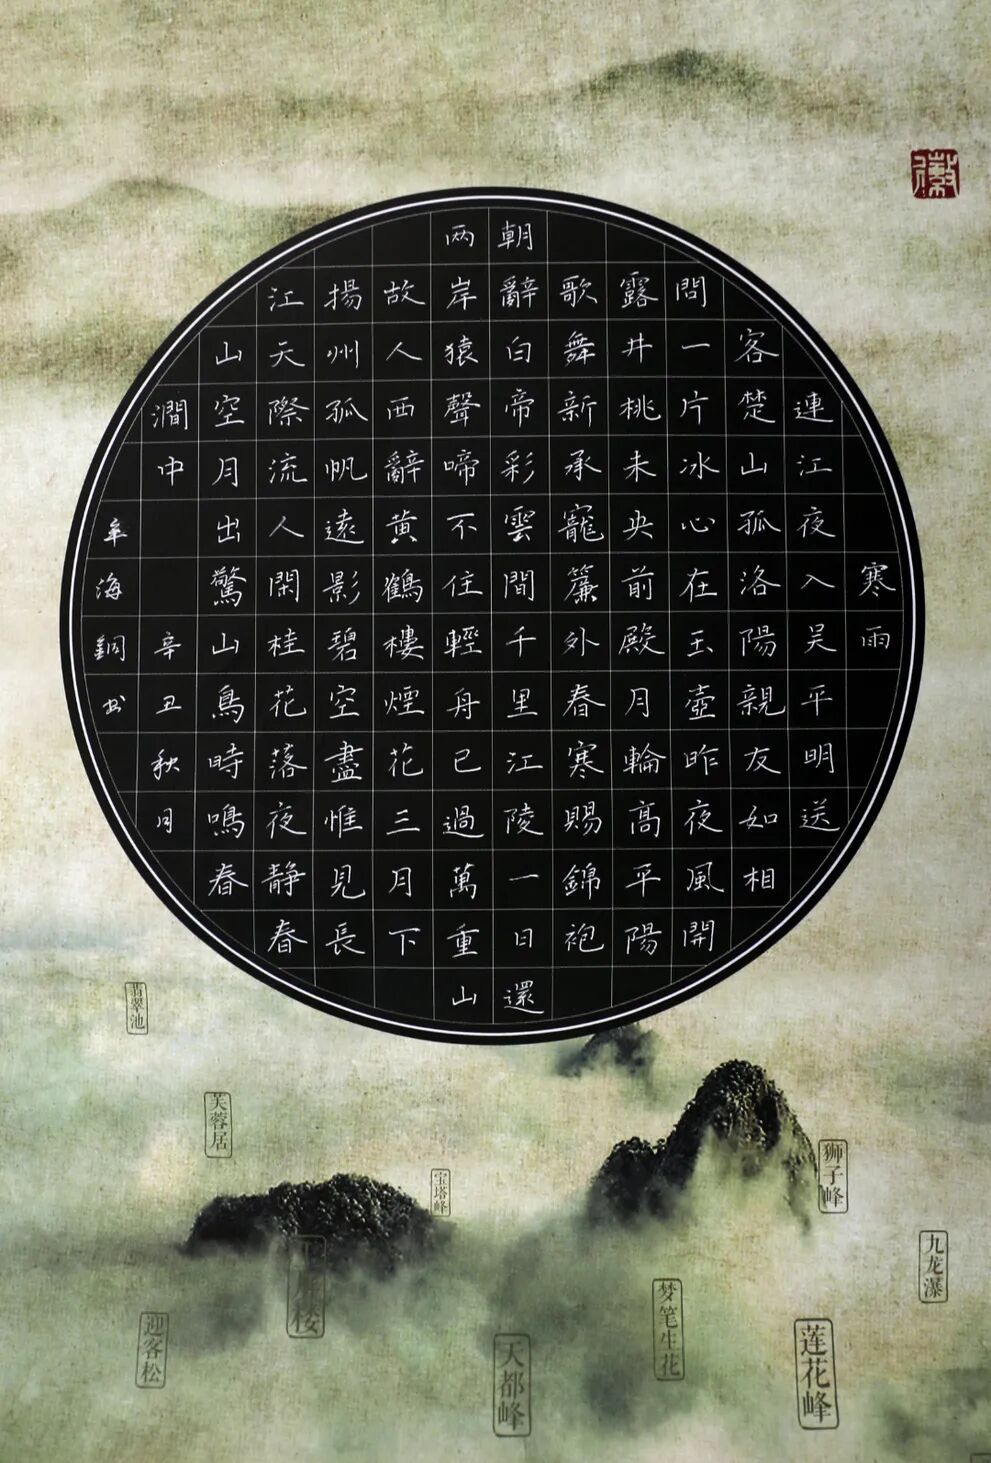 徽
寒雨
連江夜入吴平明送
客楚山孤洛陽親友如相
問一片冰心在玉壺昨夜風開
露井桃未央前殿月輪高平陽
歌舞新承寵簾外春寒賜錦袍
朝辭白帝彩雲間千里江陵一日還
两岸猿聲啼不住輕舟已過萬重山
故人西辭黄鶴樓煙花三月下
揚州孤帆遠影碧空盡惟見長
江天際流人閑桂花落夜静春
山空月出驚山鳥時鳴春
澗中
辛丑秋月
牟海銅书
翡翠池
芙蓉居
宝塔峰
狮子峰
九龙瀑
梦笔生花
莲花峰
天都峰
迎客松